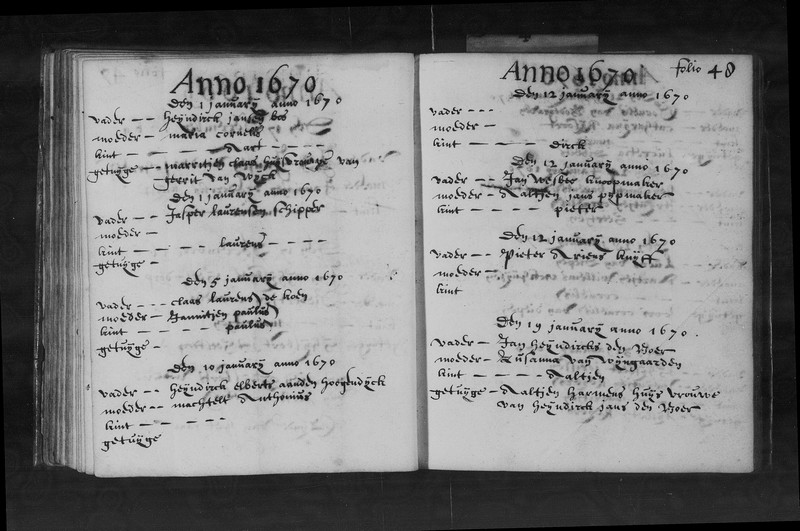 Anno 1670
den 1 januarÿ anno 1670
vader - - heÿndirck jansen bos
moeder - maria cornelis
kint - - - - - aart - - - -
getuÿge - marritjen claas huisvrouwe van
gerrit van wÿck
den 1 januarÿ anno 1670
vader - - Jasper laurensen schipper
moeder -
kint - - - - laurens - - - -
getuÿge -
den 5 januarÿ anno 1670
vader - - claas laurens de koen
moeder - Jannitjen paulus
kint - - - - - paulus
getuÿge -
den 10 januarÿ anno 1670
vader - - heÿndirck elberts aanden hoogendÿck
moeder - - machtelt Anthonius
kint - - - -
getuÿge
Anno 1670
folio 48
den 12 januarÿ anno 1670
vader - - -
moeder -
kint - - - - - dirck
den 12 januarÿ anno 1670
vader - - Jan wesber knoopmaker
moeder - Aaltjen jans popmaker
kint - - - - - pieter
den 12 januarÿ anno 1670
vader - - Pieter Ariens kuÿff
moeder -
kint
den 19 januarÿ anno 1670
vader - Jan heÿndircks den Boer
moeder - Susanna van wÿngaarden
kint - - - - Aaltjen
getuÿge - Aaltjen harmens huÿs vrouwe
van heÿndirck jans den Boer